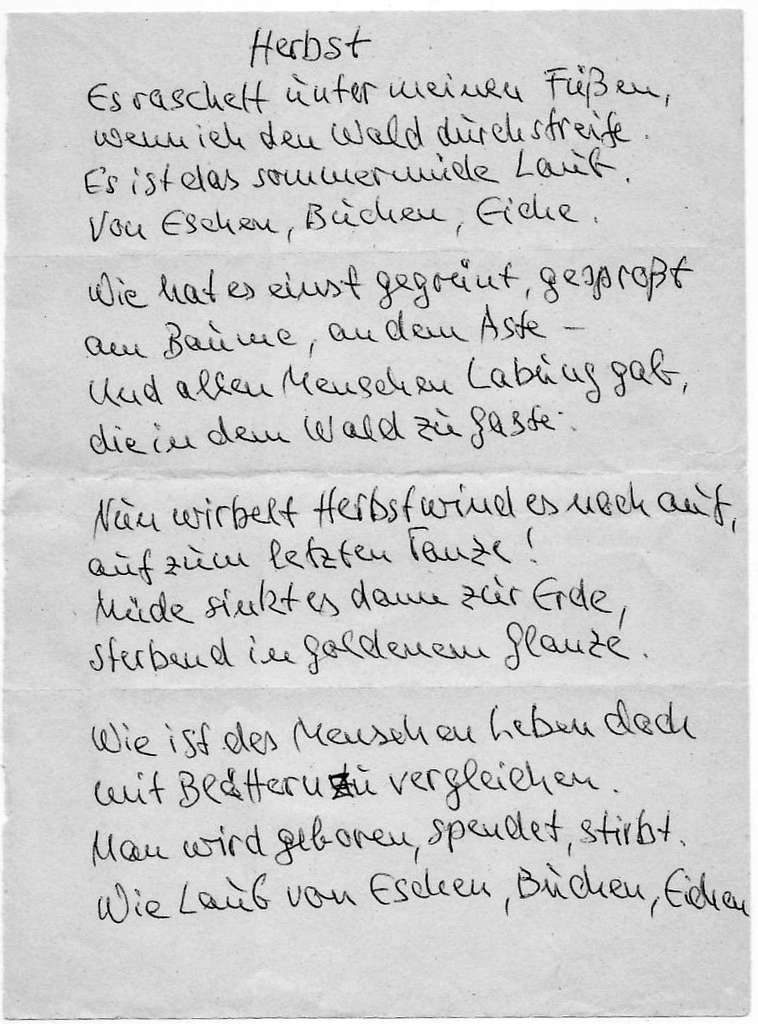 Herbst
Es raschelt unter meinen Füßen,
wenn ich den Wald durchstreife.
Es ist das sommermüde Laub.
Von Eschen, Buchen, Eiche.
Wie hat es einst gegrünt, gesproßt
am Baume, an dem Aste –
Und allen Menschen Labung gab,
die in dem Wald zu Gaste.
Nun wirbelt Herbstwind es noch auf,
auf zum letzten Tanze!
Müde sinkt es dann zur Erde,
sterbend in goldenem Glanze.
Wie ist des Menschen Leben doch
mit Blättern zu vergleichen.
Man wird geboren, spendet, stirbt.
Wie Laub von Eschen, Buchen, Eichen